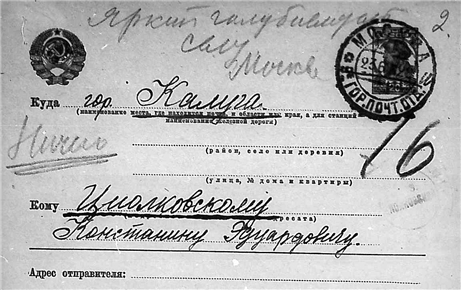 Яркий
2.
Москв
МОСКВА
ГОР.ПОЧТ.ОТД.
Куда гор. Калуга.
(наименование места, где находится почта, и области или края, а для станций
наименование железной дороги)
16
(район, село или деревня)
(улица, № дома и квартиры)
Кому Циолковскому
Константину Эдуардовичу.
Адрес отправителя: